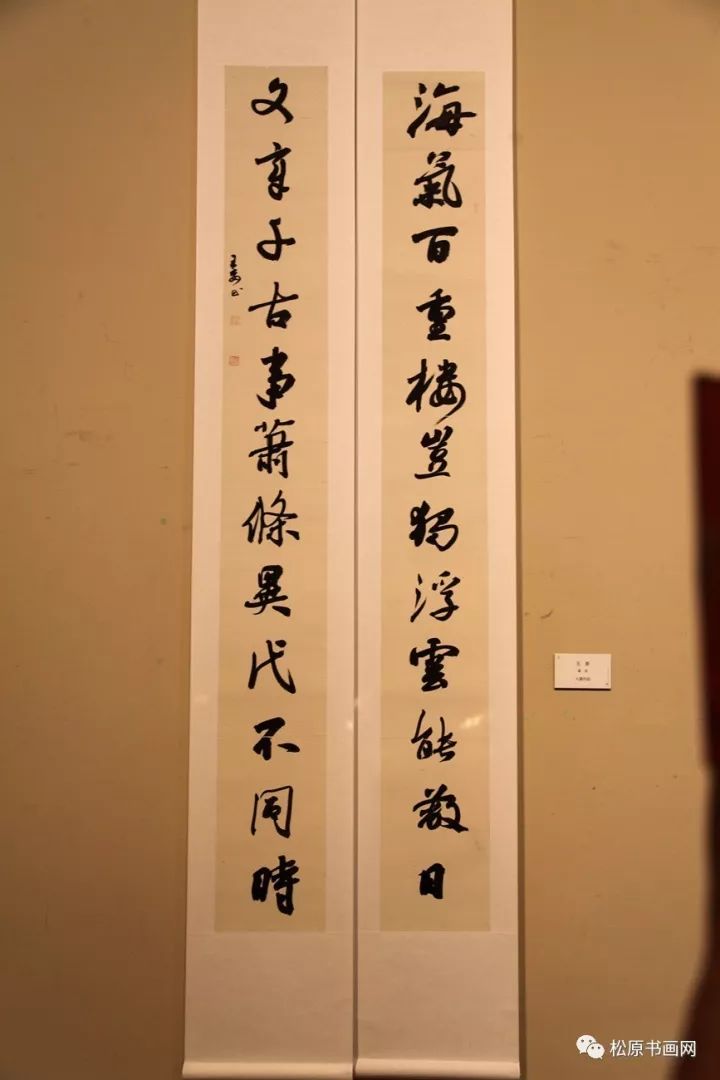 海氣百重樓豈獨浮雲能蔽日
文章千古事蕭條異代不同時
松原书画网